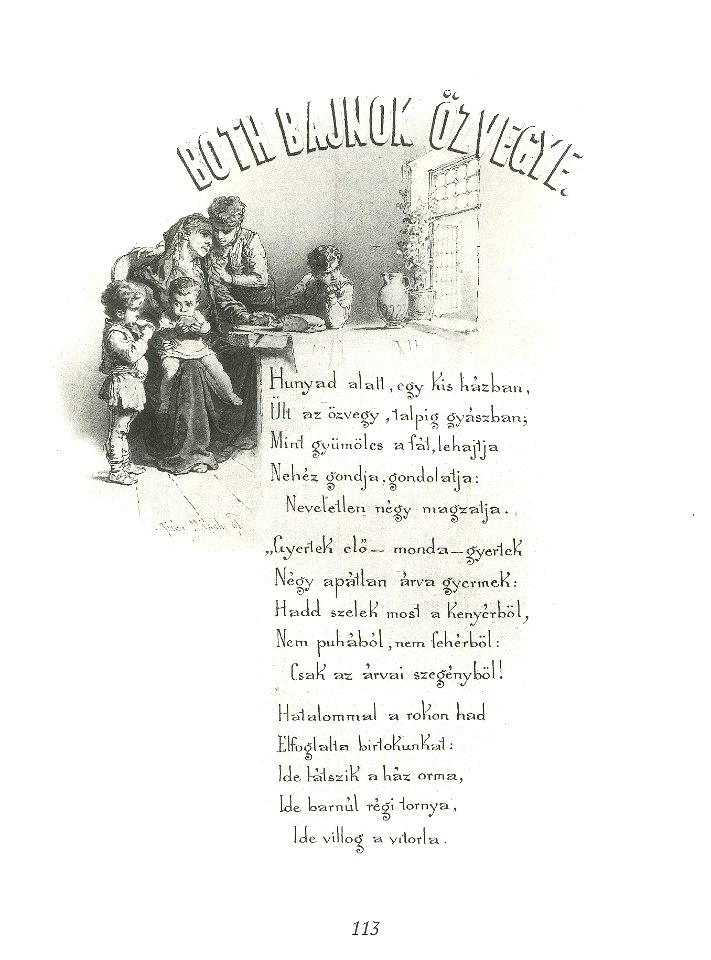 BOTH BAJNOK ÖZVEGYE.
Hunyad alatt, egy kis házban,
Ült az özvegy, talpig gyászban;
Mint gyümölcs a fát, lehajtja
Nehéz gondja, gondolatja:
Neveletlen négy magzatja.
„Gyertek elő — monda — gyertek
Négy apátlan árva gyermek:
Hadd szelek most a kenyérből,
Nem puhából, nem fehérből:
Csak az árvai szegényből!
Hatalommal a rokon had
Elfoglalta birtokunkat:
Ide látszik a ház orma,
Ide barnúl régi tornya,
Ide villog a vitorla.
113